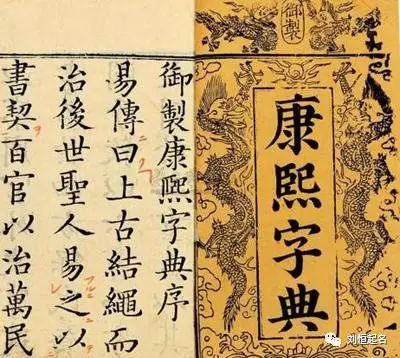 御製
康熙字典
御製康熙字典序
易傳曰上古結繩而
治後世聖人易之以
書契百官以治萬民
刘恒起名